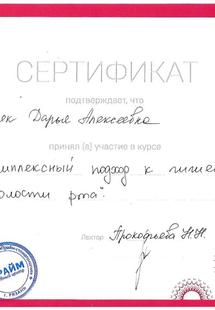 СЕРТИФИКАТ
подтверждает, что
ек Дарья Алексеевна
принял (а) участие в курсе
мплексный подход к гигиен
олости рта".
Лектор Прокофьева Н.Н.
РАЙМ
г. РЯЗАНЬ